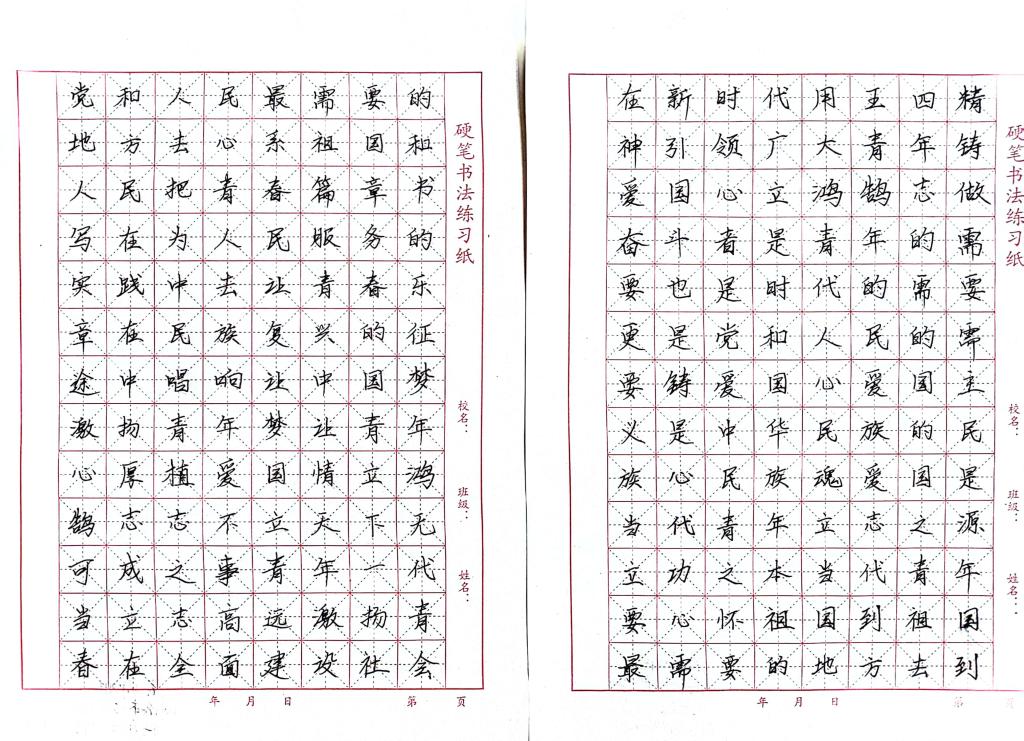 党和人民最需要的
地方去心系祖国和
人民把青春篇章书
写在为人民服务的
实践中去让青春乐
章在民族复兴的征
途中唱响让中国梦
激扬青年梦让青年
心厚植爱国情立鸿
鹄志志不立天下无
可成之事青年一代
当立志高远激扬青
春在全面建设社会
硬笔书法练习纸
校名：
班级：
姓名：
年 月 日
第 页
在新时代用王四精
神引领广大青年铸
爱国心立鸿鹄志做
奋斗者是青年的需
要也是时代的需要
更是党和人民的需
要铸爱国心爱国主
义是中华民族的民
族心民族魂爱国是
当代青年立志之源
立功之本当代青年
要心怀祖国到祖国
最需要的地方去到
硬笔书法练习纸
校名：
班级：
姓名：
年 月 日
第 页